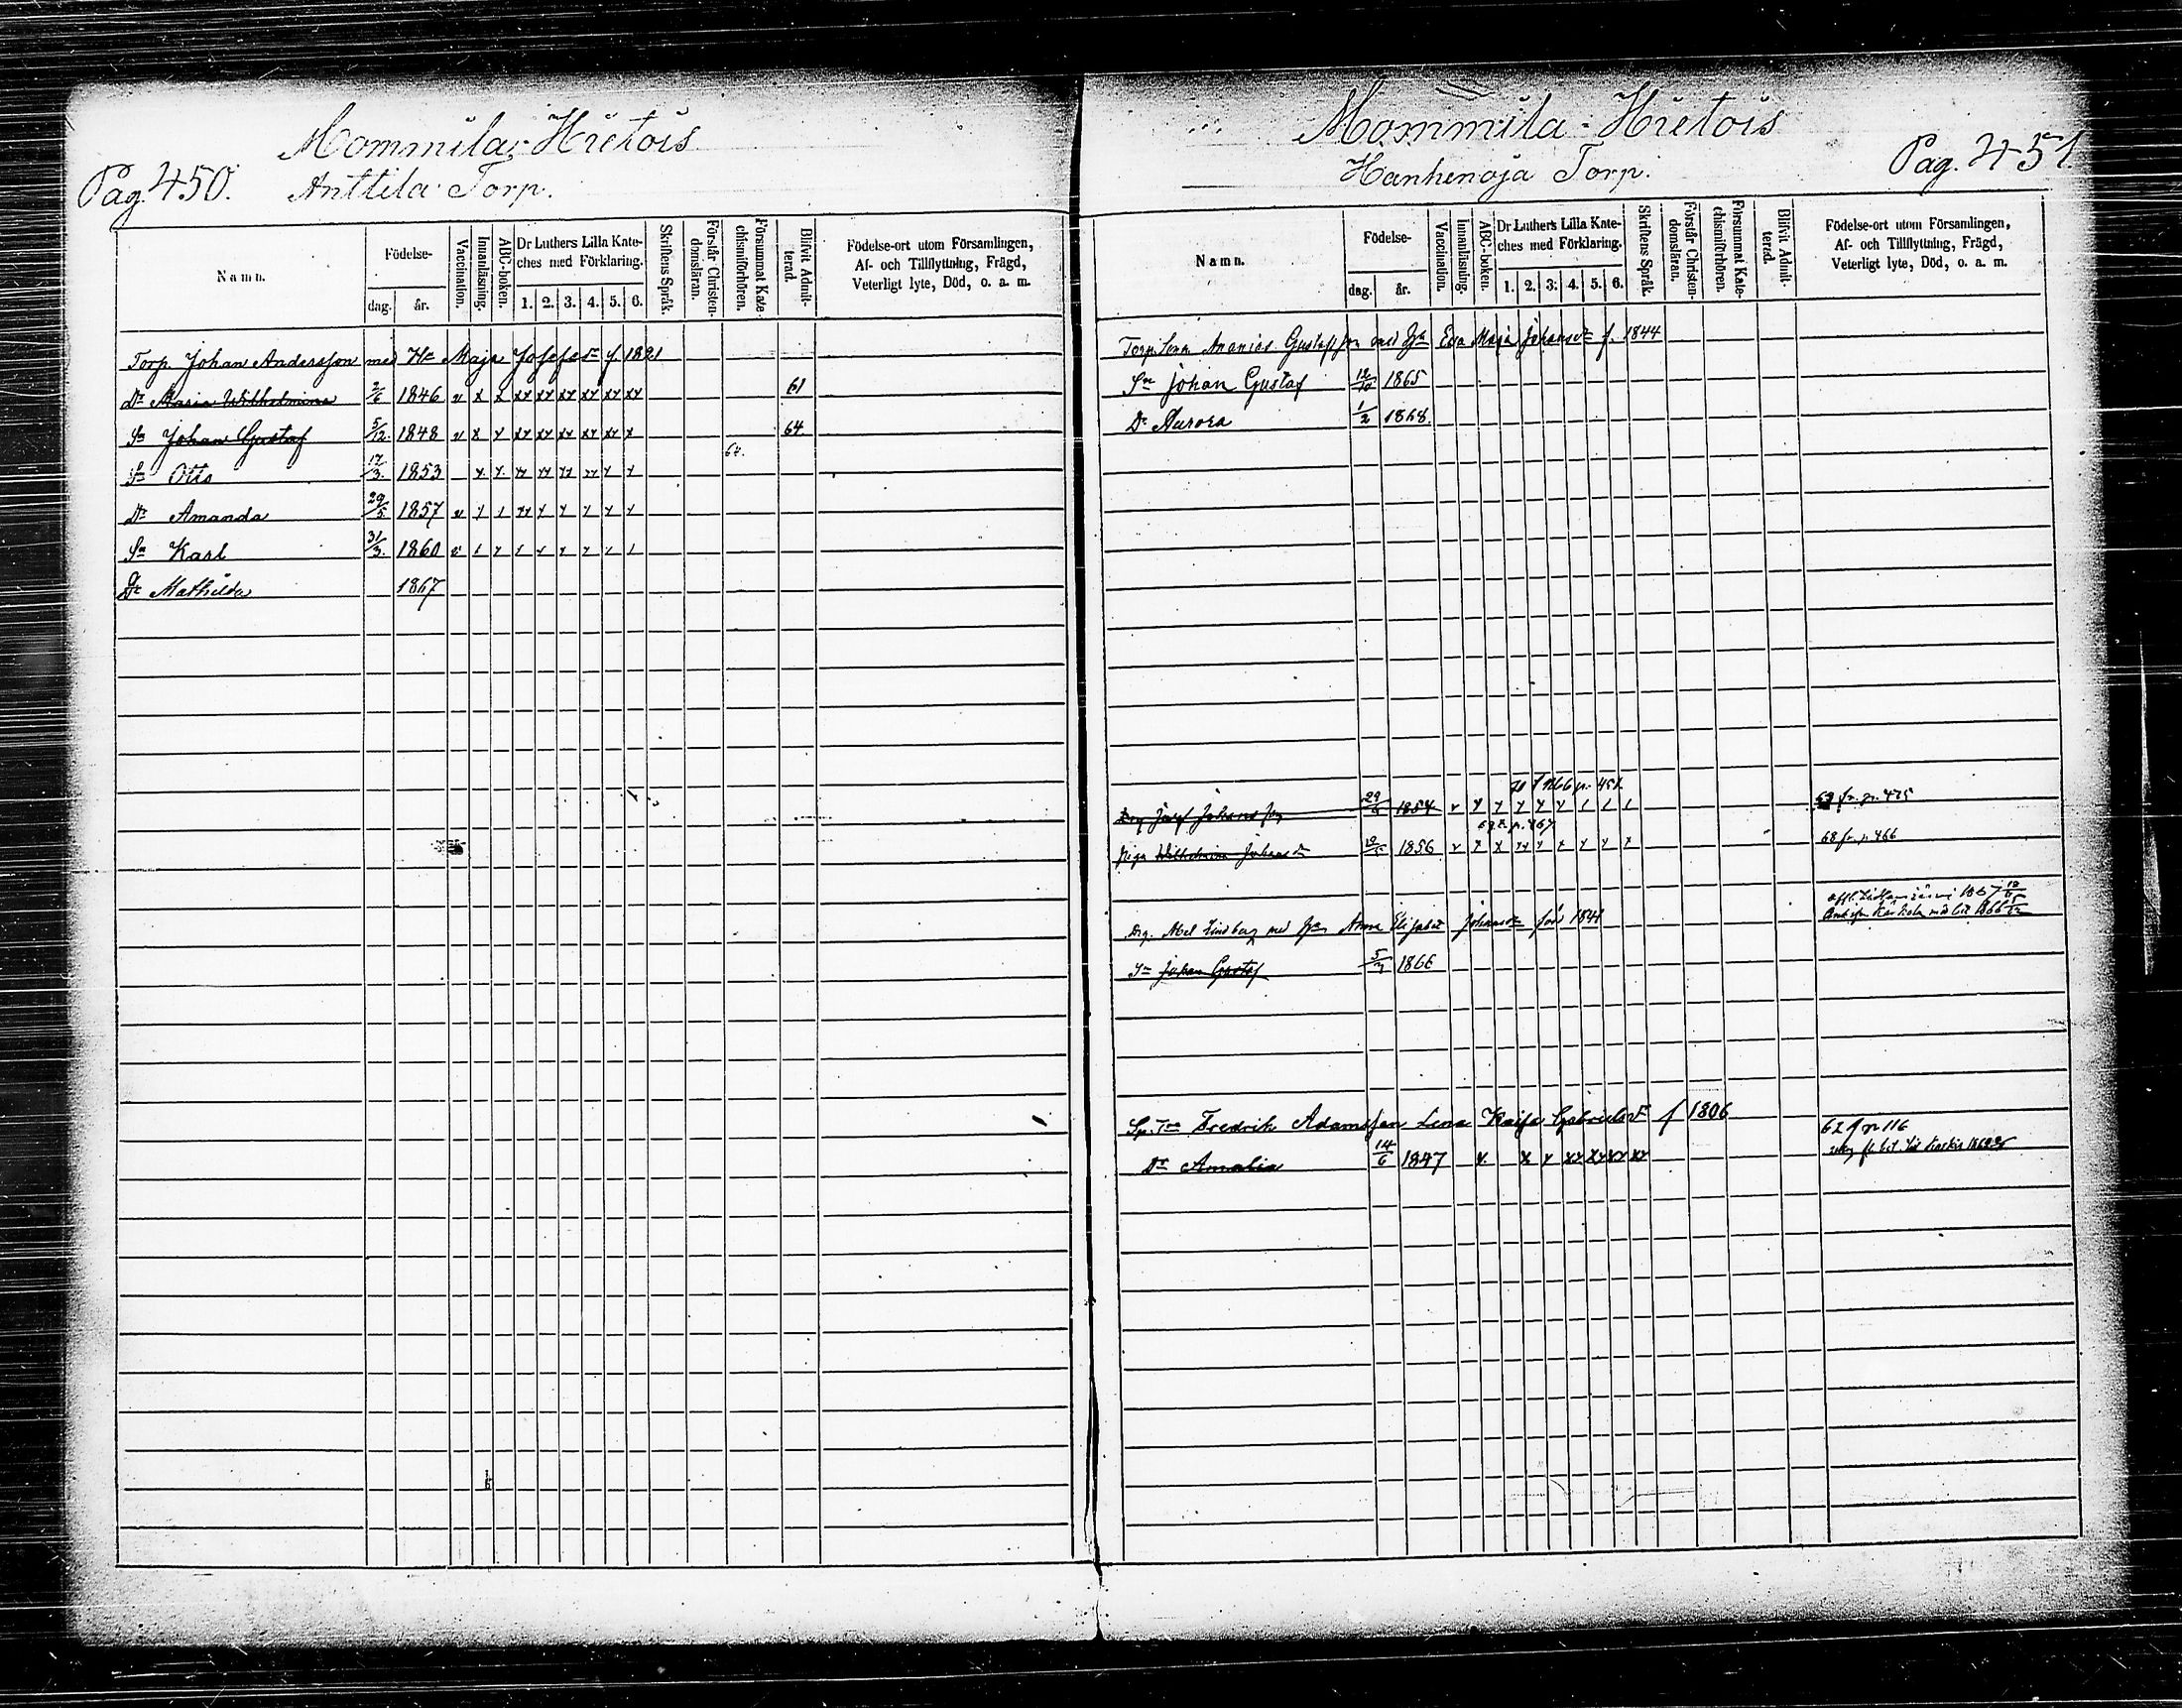 Mommila Hietois
Pag. 450. Anttila Torp.
Namn. Födelse- dag. år. Vaccination. Innanläsning. ABC-boken. Dr Luthers Lilla Kateches med Förklaring. 1. 2. 3. 4. 5. 6. Skriftens Språk. Förstår Christendomsläran. Försummat Katechismiförhören. Blifvit Admitterad. Födelse-ort utom Församlingen, Af- och Tillflyttning, Frägd, Veterligt lyte, Död, o. a. m.
Torp. Johan Andersson med Hu Maja Josefsdr f. 1821
Dr Maria Wilhelmina 2/6 1846 v x x xx xx xx xx xx xx 61
Sn Johan Gustaf 5/12 1848 v x x xx xx xx xx xx x 64.
64.
Sn Otto 17/3 1853 x x xx xx xx xx x x
Dr Amanda 29/5 1857 v x x xx x x x x x
Sn Karl 31/3 1860 v x x x x x x x x
Dr Mathilda 1867
Mommila-Hietois
Hanhenoja Torp.
Pag. 451.
Namn. Födelse- dag. år. Vaccination. Innanläsning. ABC-boken. Dr Luthers Lilla Kateches med Förklaring. 1. 2. 3. 4. 5. 6. Skriftens Språk. Förstår Christendomsläran. Försummat Katechismiförhören. Blifvit Admitterad. Födelse-ort utom Församlingen, Af- och Tillflyttning, Frägd, Veterligt lyte, Död, o. a. m.
Torp. Ananias Gustafsson med Hu Eva Maja Johansdr f. 1844
Sn Johan Gustaf 12/10 1865
Dr Aurora 1/2 1868.
Drg Josef Johansson 1854 fr. p. 475
69 t. p. 467
Piga Wilhelmina Johansdr 1856 68 fr. p. 466
1867
Drg. Abel Lindberg med Hu Anna Elisabet Johansdr för 1841
Sn Johan Gustaf 1866
Fredrik Adamsson Lena Kaisa Gabrielsdr f 1806
62 f p 116
Dr Amalia 14/6 1847 x x x xx xx xx xx